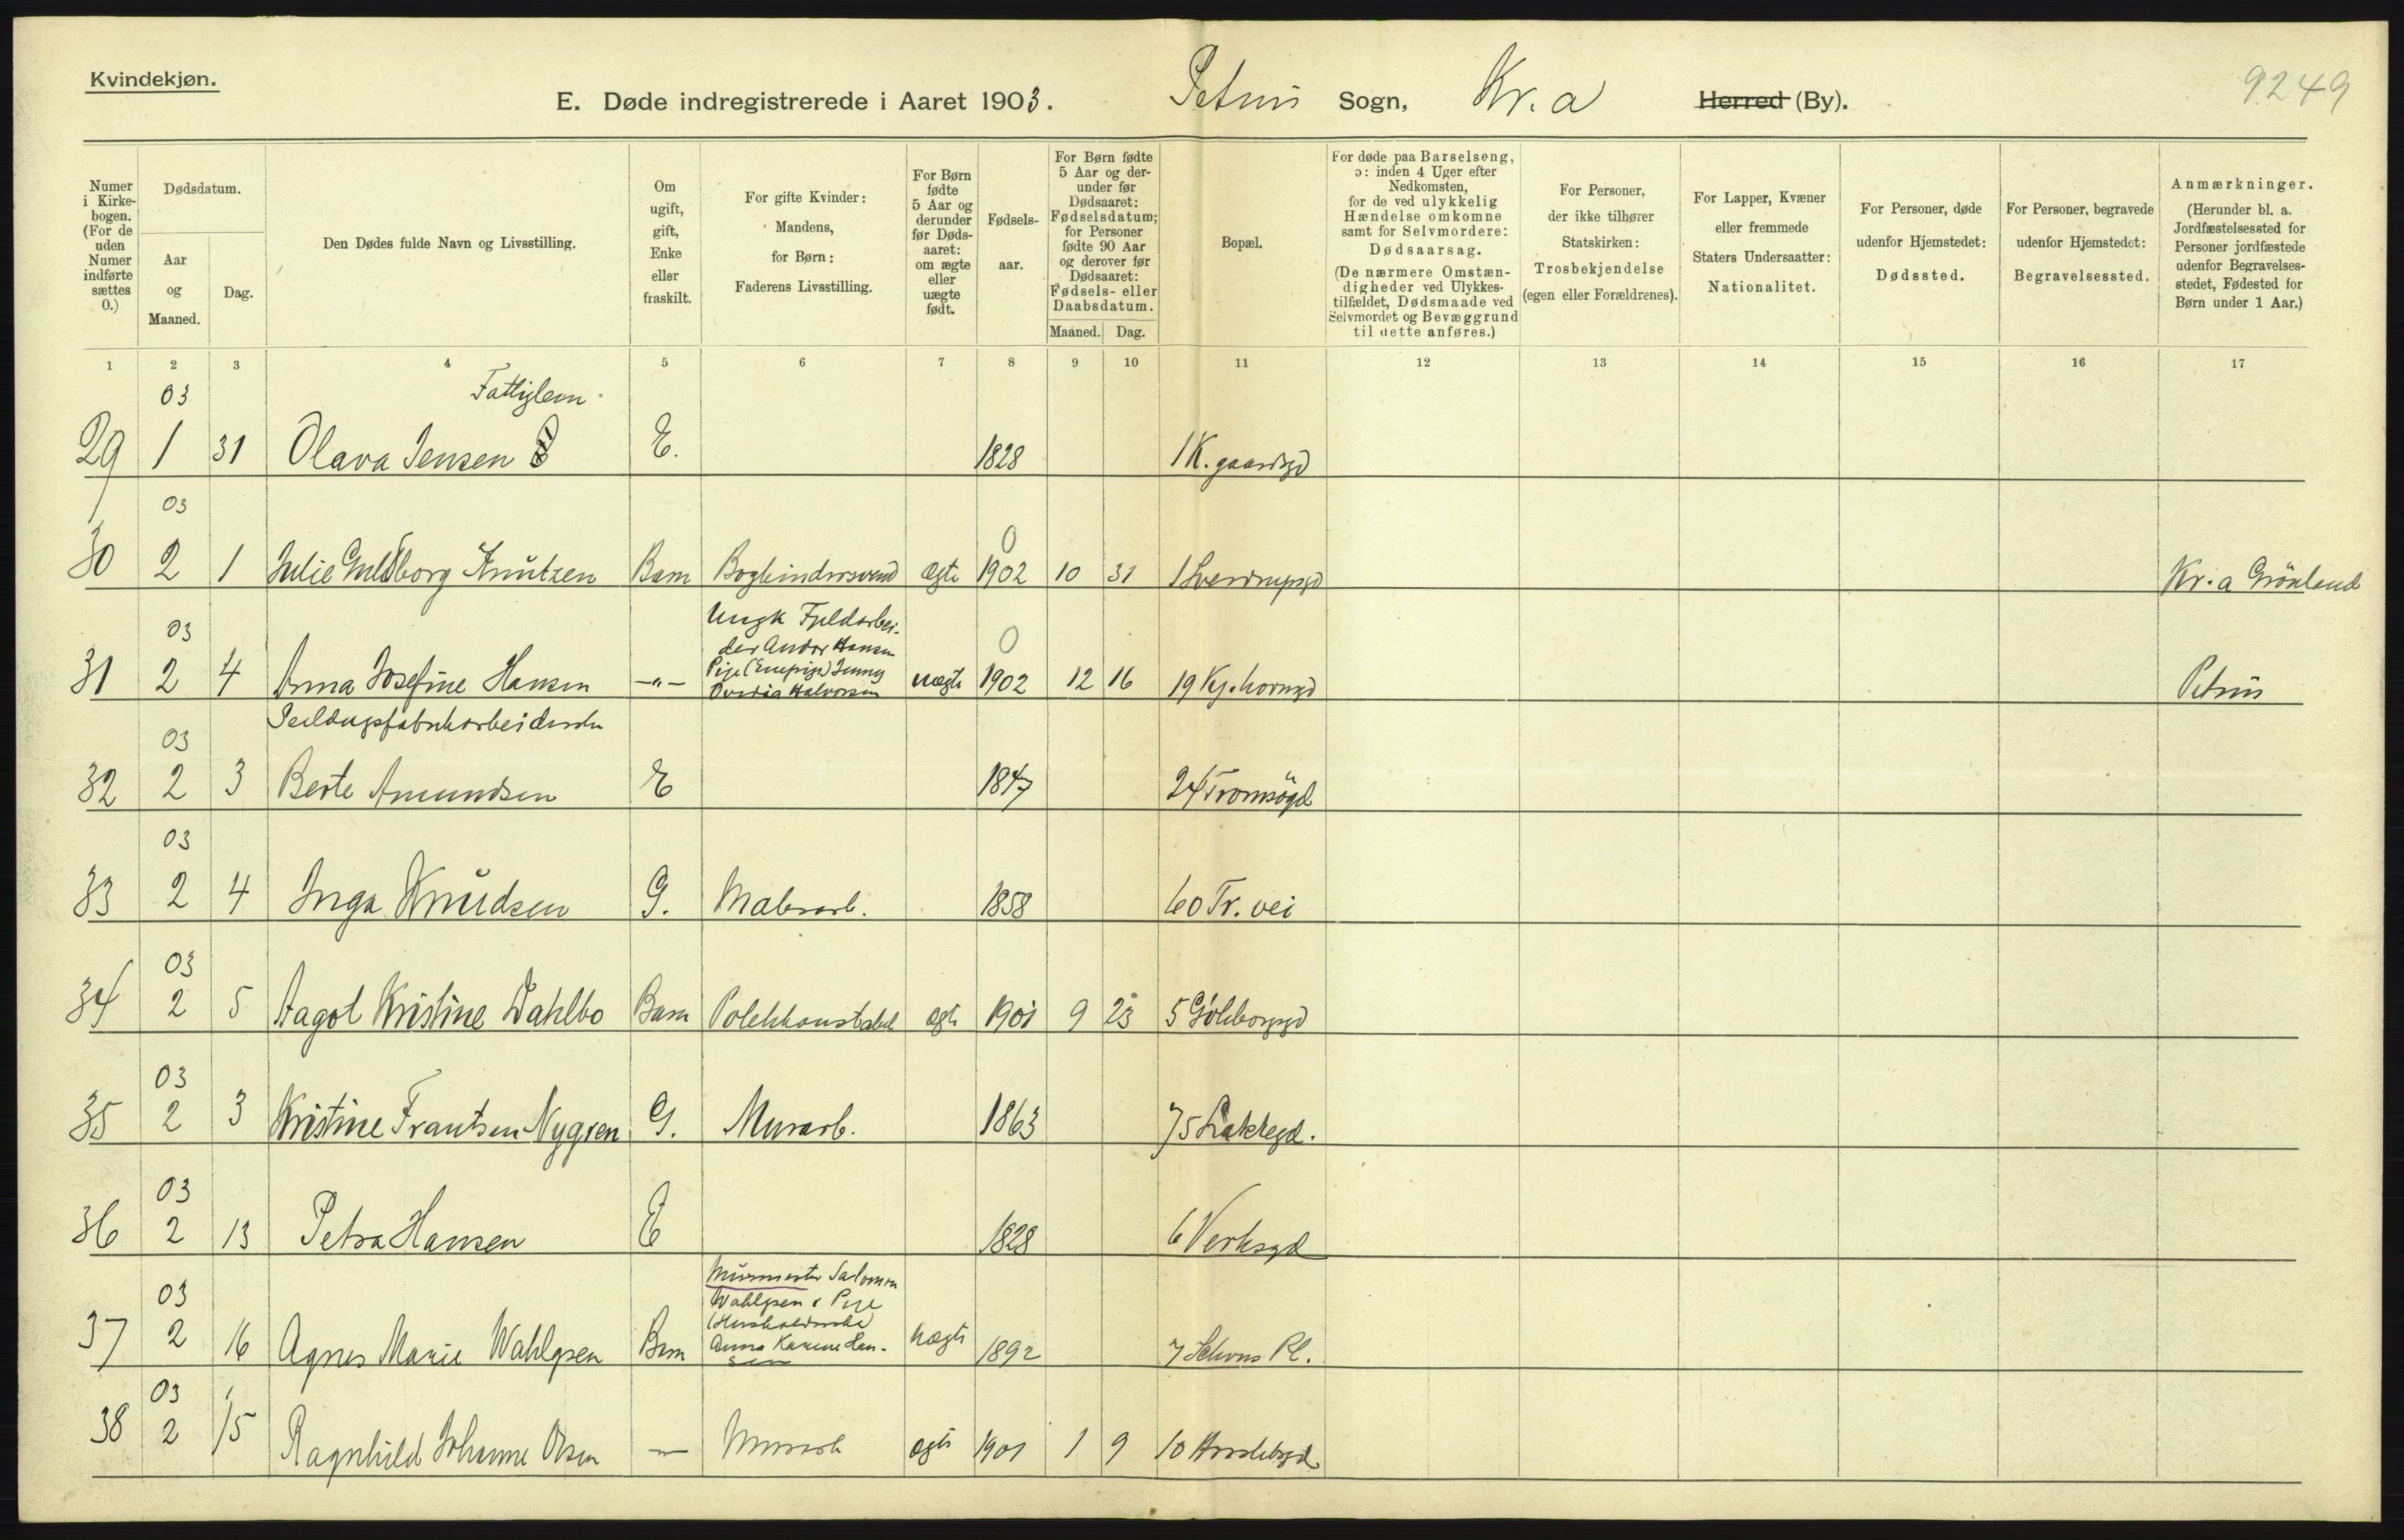 Kvindekjøn.
E. Døde indregistrerede i Aaret 1903. Petrus Sogn, Kr.a Herred (By).
9249
Numer i Kirke-bogen. (For de uden Numer indførte sættes 0.)
Dødsdatum.
Aar og Maaned.
Dag.
Den Dødes fulde Navn og Livsstilling.
Om ugift, gift, Enke eller fraskilt.
For gifte Kvinder: Mandens, for Børn: Faderens Livsstilling.
For Børn fødte 5 Aar og derunder før Døds-aaret: om ægte eller uægte født.
Fødsels-aar.
For Børn fødte 5 Aar og der-under før Dødsaaret: Fødselsdatum; for Personer fødte 90 Aar og derover før Dødsaaret: Fødsels- eller Daabsdatum.
Maaned. Dag.
Bopæl.
For døde paa Barselseng, ɔ: inden 4 Uger efter Nedkomsten, for de ved ulykkelig Hændelse omkomne samt for Selvmordere: Dødsaarsag. (De nærmere Omstæn-digheder ved Ulykkes-tilfældet, Dødsmaade ved Selvmordet og Bevæggrund til dette anføres.)
For Personer, der ikke tilhører Statskirken: Trosbekjendelse (egen eller Forældrenes).
For Lapper, Kvæner eller fremmede Staters Undersaatter: Nationalitet.
For Personer, døde udenfor Hjemstedet: Dødssted.
For Personer, begravede udenfor Hjemstedet: Begravelsessted.
Anmærkninger. (Herunder bl. a. Jordfæstelsessted for Personer jordfæstede udenfor Begravelses-stedet, Fødested for Børn under 1 Aar.)
1 2 3 4 5 6 7 8 9 10 11 12 13 14 15 16 17
03 Fattiglem
29 1 31 Olava Jensen E. 1828 1 K.gaardsgd
03 0
30 2 1 Julie Guldborg Knutzen Barn Bogbindersvend ægte 1902 10 31 1 Sverdrupsgd Kr.a Grönland
Ungk Fjeldarbei-
03 der Andor Hansen 0
Pige (Enepige) Jenny
31 2 4 Anna Josefine Hansen —"— Ovedia Halvorsen uægte 1902 12 16 19 Kj.hovngd Petrus
Seildugsfabrikarbeiderske
03
32 2 3 Berte Amundsen E 1847 24 Tromsögd
03
33 2 4 Inga Knudsen G. Malerarb. 1858 60 Tr. vei
03
34 2 5 Aagot Kristine Dahlbo Barn Politikonstabel ægte 1901 9 23 5 Göteborggd
03
35 2 3 Kristine Frantsen Nygren G. Murarb. 1863 75 Lakkegd.
03
36 2 13 Petra Hansen E 1828 6 Verksgd
Murmester Salomon
03 Wahlgsen & Pige
(Husholderske)
37 2 16 Agnes Marie Wahlgsen Barn Anna Karine Han-sen uægte 1892 7 Schous Pl.
03
38 2 15 Ragnhild Johanne Olsen — Murarb ægte 1901 1 9 10